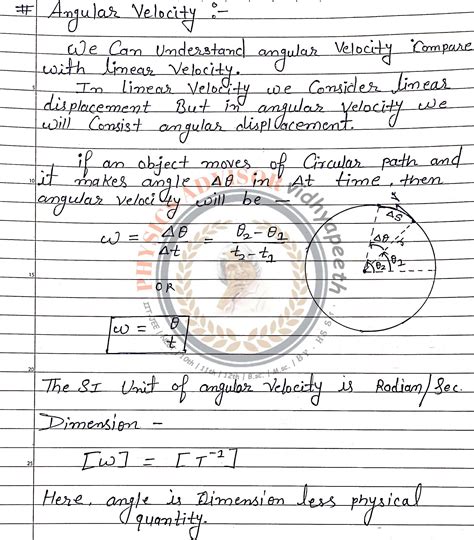 # Angular Velocity :-
We Can Understand angular Velocity Compare
with linear Velocity.
In linear Velocity we Consider linear
displacement But in angular Velocity we
will Consist angular displacement.
if an object moves of Circular path and
it makes angle Δθ in Δt time, then
angular velocity will be -
ω = Δθ/Δt = θ2 - θ1/t2 - t1
OR
[ω = θ/t]
ΔS
Δθ
θ2
θ1
The SI Unit of angular Velocity is Radian/Sec.
Dimension -
[ω] = [T⁻¹]
Here, angle is Dimension less physical
quantity.
PHYSICS ADVISOR Vidhyapeeth
10th | 11th | 12th | B.sc. | M.sc. | BY. HS Sir.
5
10
15
20
25